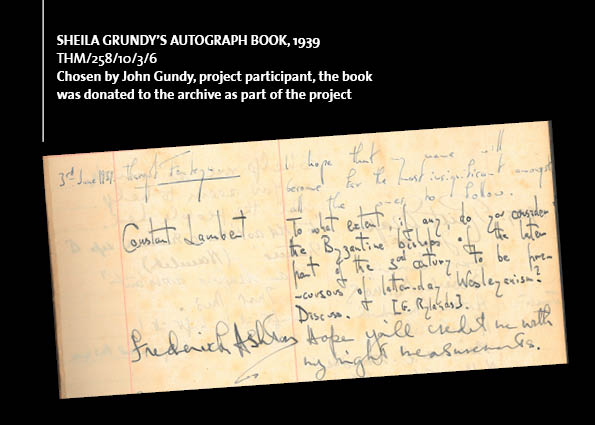 SHEILA GRUNDY'S AUTOGRAPH BOOK, 1939
THM/258/10/3/6
Chosen by John Gundy, project participant, the book
was donated to the archive as part of the project
3rd June 1939.
I hope that my name will
become far the most insignificant amongst
all the ones to follow.
Constant Lambert
To what extent, if any, do you consider
the Byzantine bishops of the later
part of the 3rd century to be pre-
-cursors of latter-day Wesleyanism?
Discuss. [G. Rylands].
Frederick Ashton
Hope you'll credit me with
my right measurements.